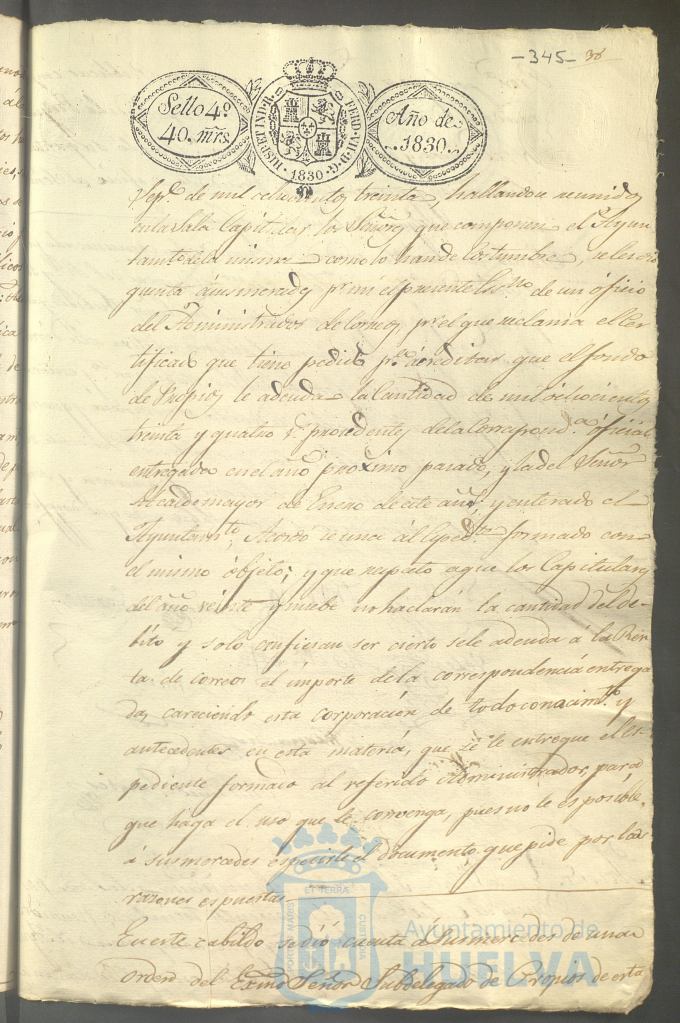 -345- 38
Sello 4º
40. mrs.
HISP. ET IND. R. FERD. VII. D. G. 1830
Año de
1830
Sepre. de mil ochocientos treinta, hallandose reunidos
en la Sala Capitular los Señores que componen el Ayun-
tamto. de la misma como lo han de costumbre, se les dió
quenta á sus mercedes pr. mi el presente Essno. de un óficio
del Administrador de Correos, pr. el que reclama el Cer-
tificado que tiene pedido pa. acreditar que el fondo
de Propios le adeuda la Cantidad de mil óchocientos
treinta y quatro rs. procedentes de la Correspondª. óficial
entregada en el año proximo pasado, y la del Señor
Alcalde mayor de Enero de este año; y enterado el
Ayuntamto. Acordó se una ál Espedte. formado con
el mismo óbjeto; y que respeto a que los Capitulares
del año veinte y nuebe no haclarán la cantidad del de-
bito y solo confiesan ser cierto se le adeuda á la Ren-
ta de correos el importe de la correspondencia entrega-
da, careciendo esta corporacion de todo conocimto. y
antecedentes en esta materia, que se le entregue el Es-
pediente formado al referido Administrador, para
que haga el uso que le convenga, pues no le es posible
á sus mercedes espedirle el documento que pide por las
razones espuestas
En este cabildo se dió cuenta á sus mercedes de una
orden del Exmo. Señor Subdelegado de Propios de esta
PORTUS MARIS ET TERRÆ CUSTODIA
Ayuntamiento de
HUELVA